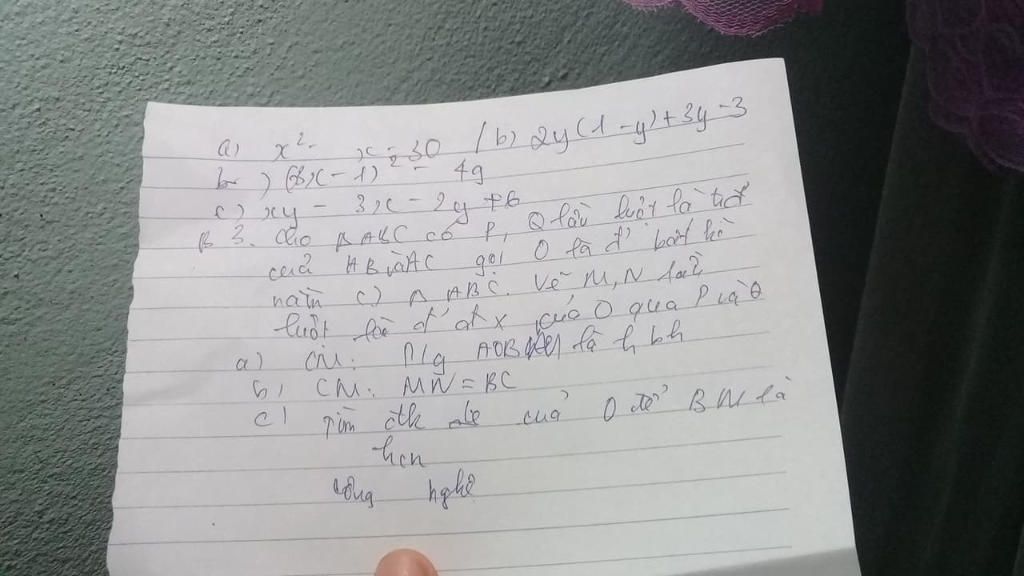 a) x² - x - 30 / b) 2y(1 - y) + 3y - 3
b) (3x - 1)² - 49
c) xy - 3x - 2y + 6
B 3. Cho ABC có P, Q lần lượt là tđ
của AB và AC gọi O là đ' bất kì
nằm Δ ABC. Vẽ M, N lần
lượt là đ' đx của O qua P và Q
a) CM: t/g AOB là hbh
b) CM: MN = BC
c) Tìm đk của O để BN là
hcn
công nghê